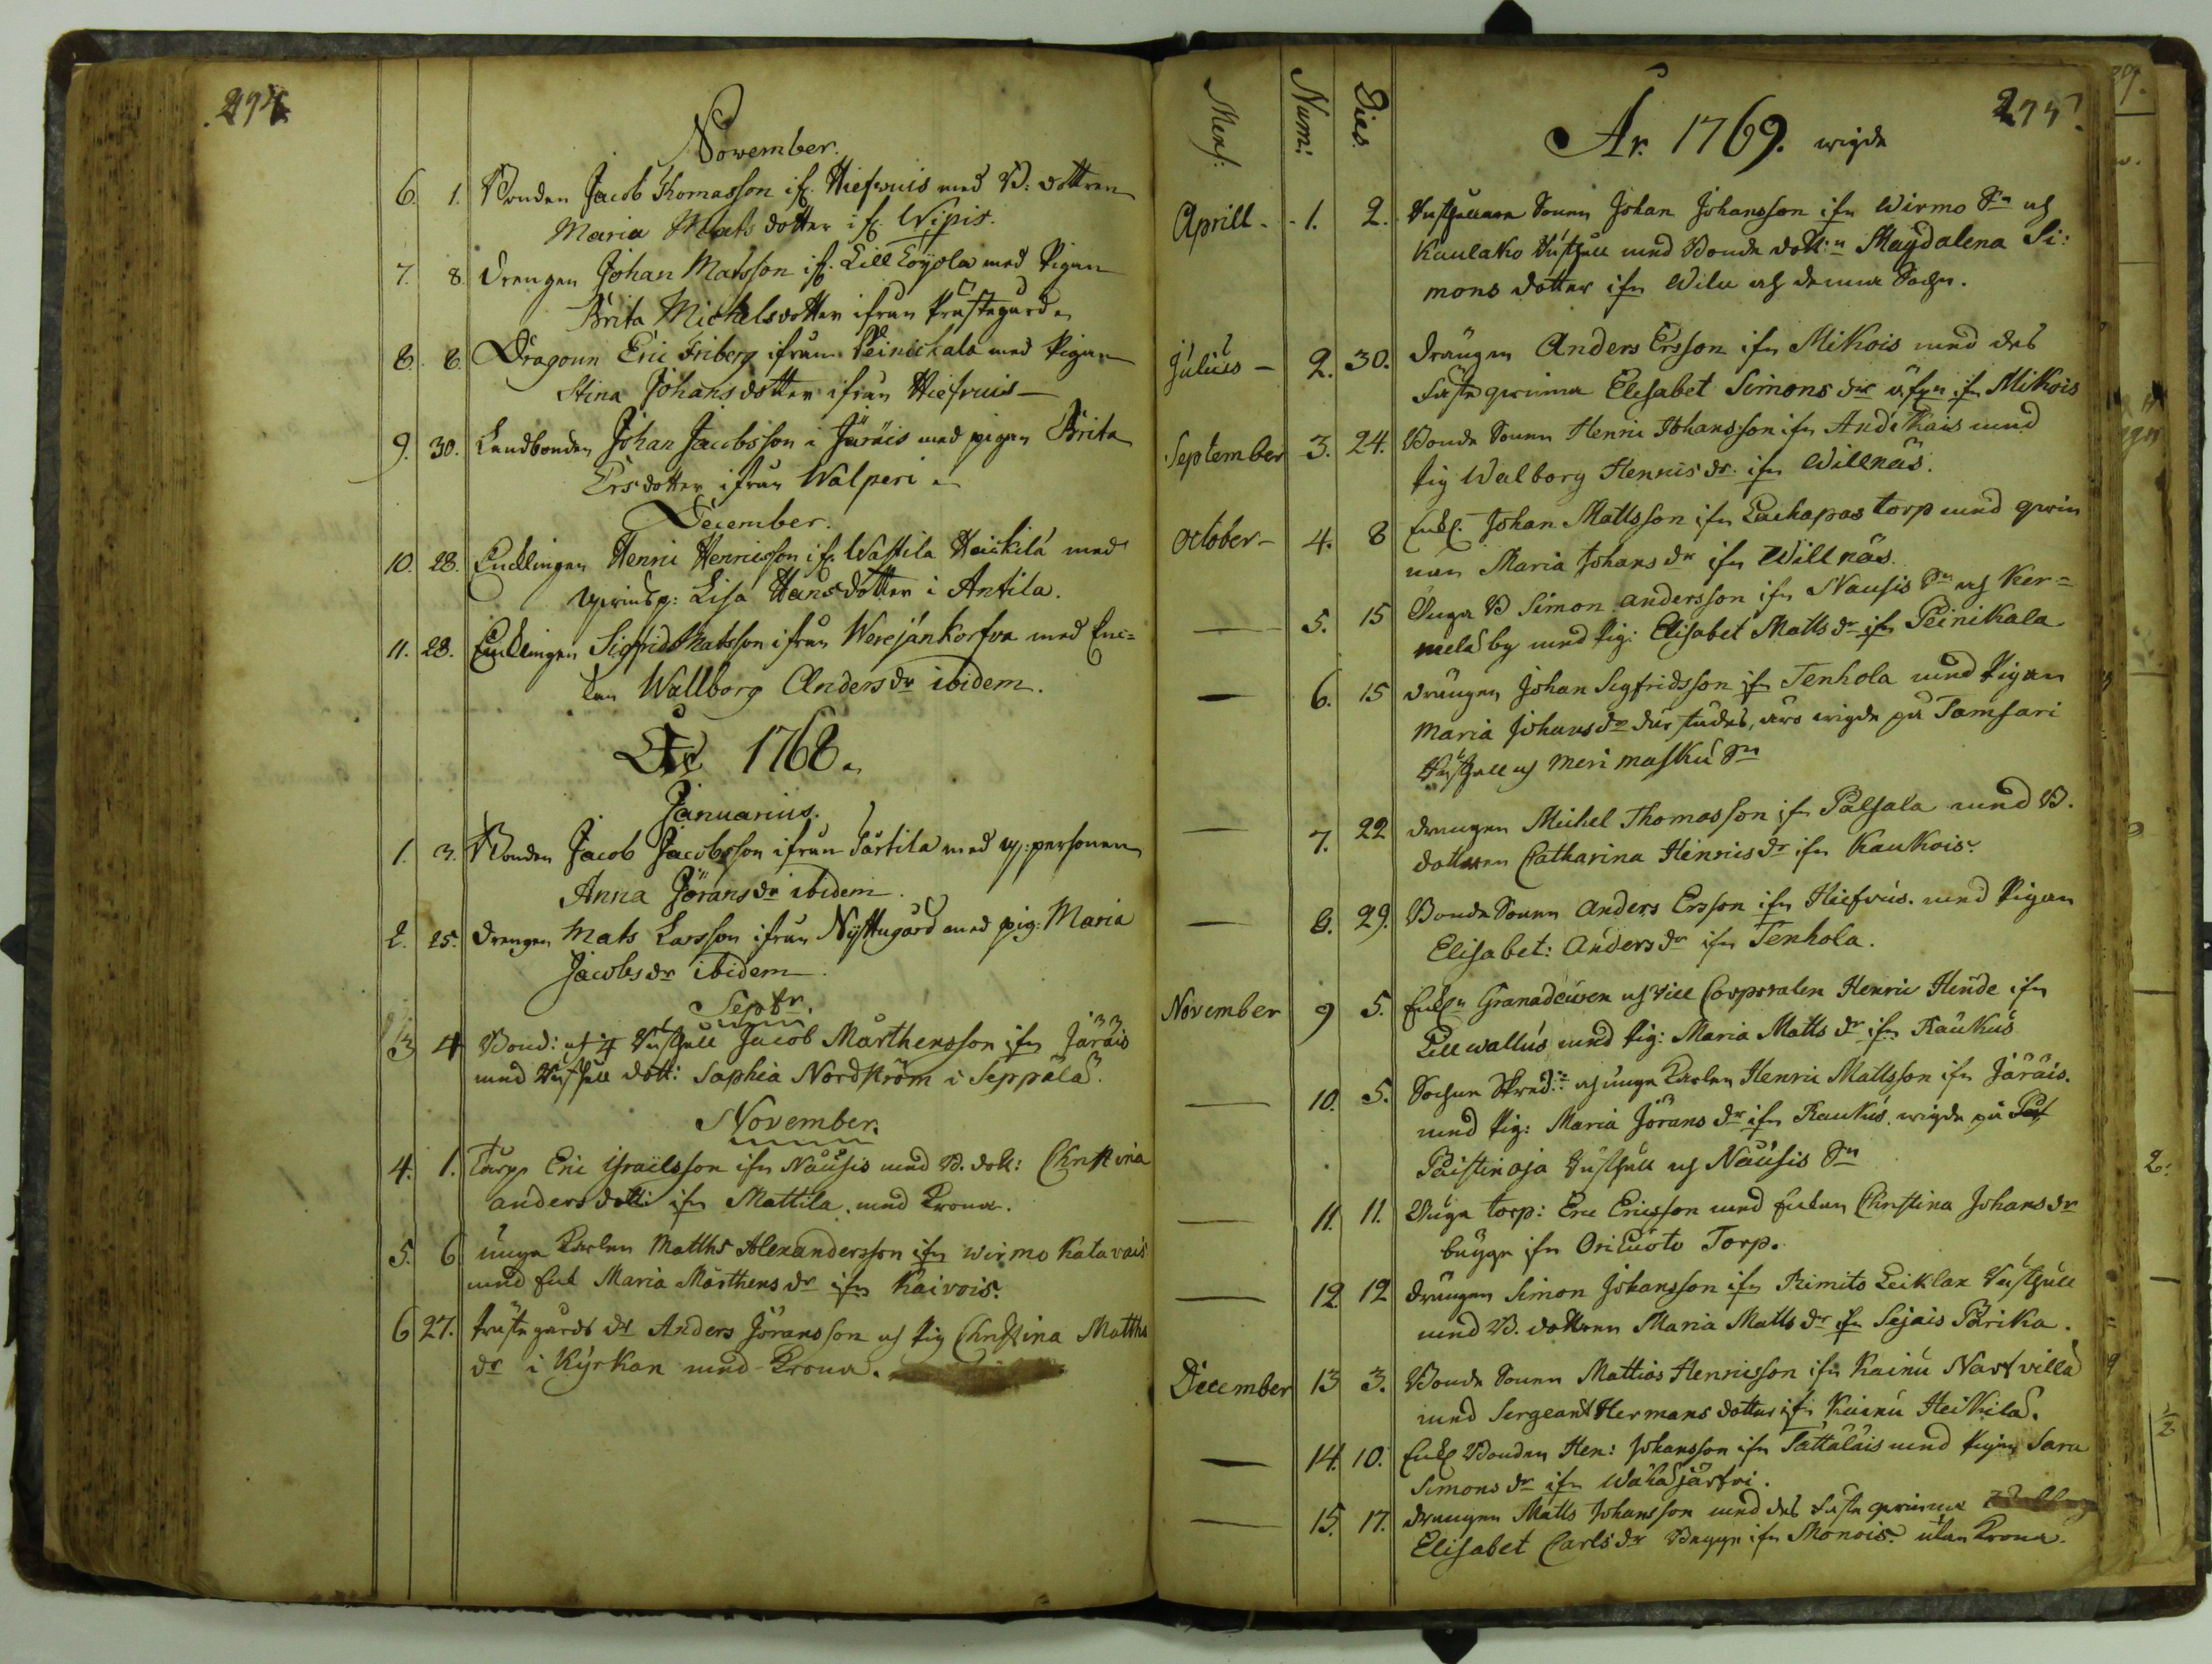 294.
November.
6. 1. Bonden Jacob Thomasson ifr. Hiefwuis med B: dottren
Maria Matsdotter ifr. Nipis.
7. 8. Drengen Johan Matsson ifr. Lill Köyola med Pigan
Brita Michelsdotter ifrån Prästegården
8. 8. Dragoun Eric Friberg ifrån Peinickala med Pigan
Stina Johansdotter ifrån Hiefvuis
9. 30. Landbonden Johan Jacobsson i Järäis med pigan Brita
Ersdotter ifrån Walperi
December.
10. 28. Encklingen Henric Henricsson ifr. Wattila Heickilä med
Lisa Hansdotter i Antila.
11. 28. Encklingen Sigfrid Matsson ifrån Werejänkorfva med En=
kan Wallborg Andersdr ibidem.
År 1768.
Januarius.
1. 3. Bonden Jacob Jacobsson ifrån Särkila med qv: personen
Anna Jöransdr ibidem.
2. 25. Drengen Mats Larsson ifrån Nystugård med pig: Maria
Jacobsdr ibidem.
Septr.
3 4 Bond: af Rusthåll Jacob Mårthensson ifrn Järäis
med Rusthåll dott: Sophia Nordström i Seppälä.
November.
4. 1. Torp. Eric Israelsson ifrn Nousis med B. dott: Christina
andersdott: ifrn Mattila. med Krona.
5. 6 unge Karlen Matths Alexandersson ifrn wirmo Katavais
med Enk Maria Mårthensdr ifrn Kaivois.
6 27. Prästegårds dr Anders Jöransson och Pig Christina Matths
dr i Kyrkan med Krona.
Mens: Num: Dies. År 1769. wigde 295.
Aprill - 1. 2. Rusthållare Sonen Johan Johansson ifrn Wirmo Sn och
Kaulako Rusthåll med Bonde dott:n Magdalena Si:
mons dotter ifrn Wilu af denna Sochn.
Julius - 2. 30. Drängen Anders Ersson ifrn Mikois med des
Fäste qvinna Elisabet Simons dr äfvn ifrn Mikois
September 3. 24. Bonde Sonen Henric Johansson ifrn Andikais med
Pig Walborg Henricsdr. ifrn Willnäs.
October - 4. 8 Enkl. Johan Mattsson ifrn Laihapas torp med qwin
nan Maria Johans dr ifrn Willnäs.
— 5. 15 Unga B Simon andersson ifrn Nousis Sn och Ker=
melä by med Pig: Elisabet Matts dr ifrn Peinikala
— 6. 15 drängen Johan Sigfridsson ifrn Tenhola med Pigan
Maria Johans dr därstädes, äro wigde på Tamsari
Rusthåll af meri masku Sn
— 7. 22 drengen Michel Thomasson ifrn Palsala med B.
dottren Catharina Henricsdr ifrn Kaukois.
— 8. 29. Bonde Sonen Anders Ersson ifrn Hiefvuis. med Pigan
Elisabet: Anders dr ifrn Tenhola.
November 9 5. Enkln Granadeuren och vice Corporalen Henric Hinde ifrn
Lill wallus med Pig: Maria Matts dr ifrn Raukus
— 10. 5. Sochne Skred:n och unge Karlen Henric Mattsson ifrn Järäis.
med Pig: Maria Jörans dr ifrn Raukus. wigde på
Päistinoja Rusthåll af Nousis Sn
— 11. 11. Unge torp: Eric Ericsson med Enkan Christina Johansdr
begge ifrn Oriluoto Torp.
— 12. 12 drängen Simon Johansson ifrn Rimito Leiklax Rusthåll
med B. dottren Maria Matts dr ifrn Sejais Pärika.
December 13 3. Bonde Sonen Mattias Henricsson ifrn Kainu Narfvillä
med Sergeant Hermans dotter ifrn Kainu Heikilä.
— 14. 10. Enkl Bonden Hen: Johansson ifrn Tattäläis med Pigan Sara
Simons dr ifrn Wähäjärfvi.
— 15. 17. drengen Matts Johansson med des Fäste qvinna
Elisabet Carls dr Begge ifrn Monois. utan Krona.